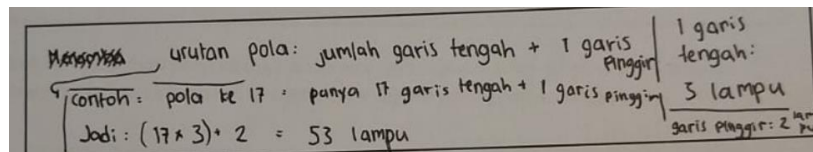 urutan pola: jumlah garis tengah + 1 garis pinggir
contoh: pola ke 17 = panya 17 garis tengah + 1 garis pinggir
Jadi: (17 x 3) + 2 = 53 lampu
1 garis
tengah:
3 lampu
garis pinggir: 2 lampu